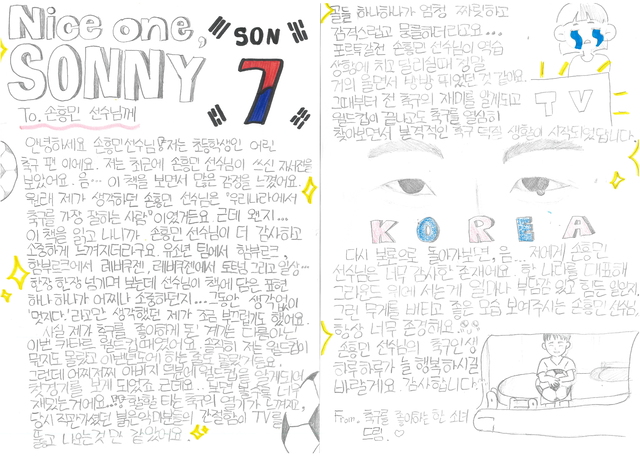 Nice one,
SONNY
SON
7
To. 손흥민 선수님께
안녕하세요 손흥민선수님! 저는 초등학생인 어린
축구 팬 이에요. 저는 최근에 손흥민 선수님이 쓰신 자서전을
보았어요. 음... 이 책을 보면서 많은 감정을 느꼈어요.
원래 제가 생각하던 손흥민 선수님은 "우리나라에서
축구를 가장 잘하는 사람"이었거든요. 근데 왠지...
이 책을 읽고 나니까 손흥민 선수님이 더 감사하고
소중하게 느껴지더라구요. 유소년 팀에서 함부르크,
함부르크에서 레버쿠젠, 레버쿠젠에서 토트넘 그리고 일상...
한장 한장 넘기며 보는데 선수님이 책에 담은 표현
하나하나가 어찌나 소중하던지... 그동안 생각없이
'멋지다.'라고만 생각했던 제가 조금 부끄럽기도 했어요.
사실 제가 축구를 좋아하게 된 계기는 다름아닌
이번 카타르 월드컵 때였어요. 솔직히 저는 월드컵이
뭔지도 몰랐고
그런데 어찌저찌 아버지 덕분에 월드컵을 즐기게되어
첫 경기를 보게 되었죠. 근데요.. 보면 볼수록 너무
재밌는거에요. 향한 축구의 열기가 느껴지고,
당시 직관가셨던 붉은악마분들의 간절함이 TV를
뚫고 나오는것만 같았어요.
골들 하나하나가 엄청 짜릿하고
감격스럽고 뭉클하더라고요...
포르투갈전 손흥민 선수님이 역습
상황에 치고 달리실때 정말
거의 울면서 방방 뛰었던 것 같아요.
그때부터 전 축구의 재미를 알게되고
월드컵이 끝나고도 축구를 열심히
찾아보면서 본격적인 축구 덕질 생활이 시작되었답니다.
TV
KOREA
다시 본론으로 돌아가보면, 음... 저에게 손흥민
선수님은 너무 감사한 존재에요. 한 나라를 대표해
그라운드 위에 서는게 얼마나 부담감 있고 힘든 일인지.
그런 무게를 버티고 좋은 모습 보여주시는 손흥민 선수님,
항상 너무 존경해요.
손흥민 선수님의 축구인생
하루하루가 늘 행복하시길
바랄게요. 감사합니다!
From. 축구를 좋아하는 한 소녀
드림. ♡